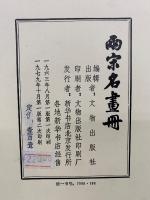 兩宋名畫冊
編輯者：文物出版社
出版者：文物出版社
印刷者：文物出版社印刷厂
發行者：新华书店北京发行所
各地新华书店經售
一九六三年八月第一版第一次印刷
一九七九年十月第一版第二次印刷